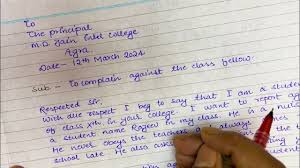 To
The principal
M.D. Jain Intel College
Agra
Date - 12th March 2024
Sub - To complain against the class fellow.
Respected Sir,
With due respect I beg to say that I am a student
of class xth. in your college. I want to report ag
a student name Rogers in my class. He is a
He never obeys the teachers always
school late. He also asks